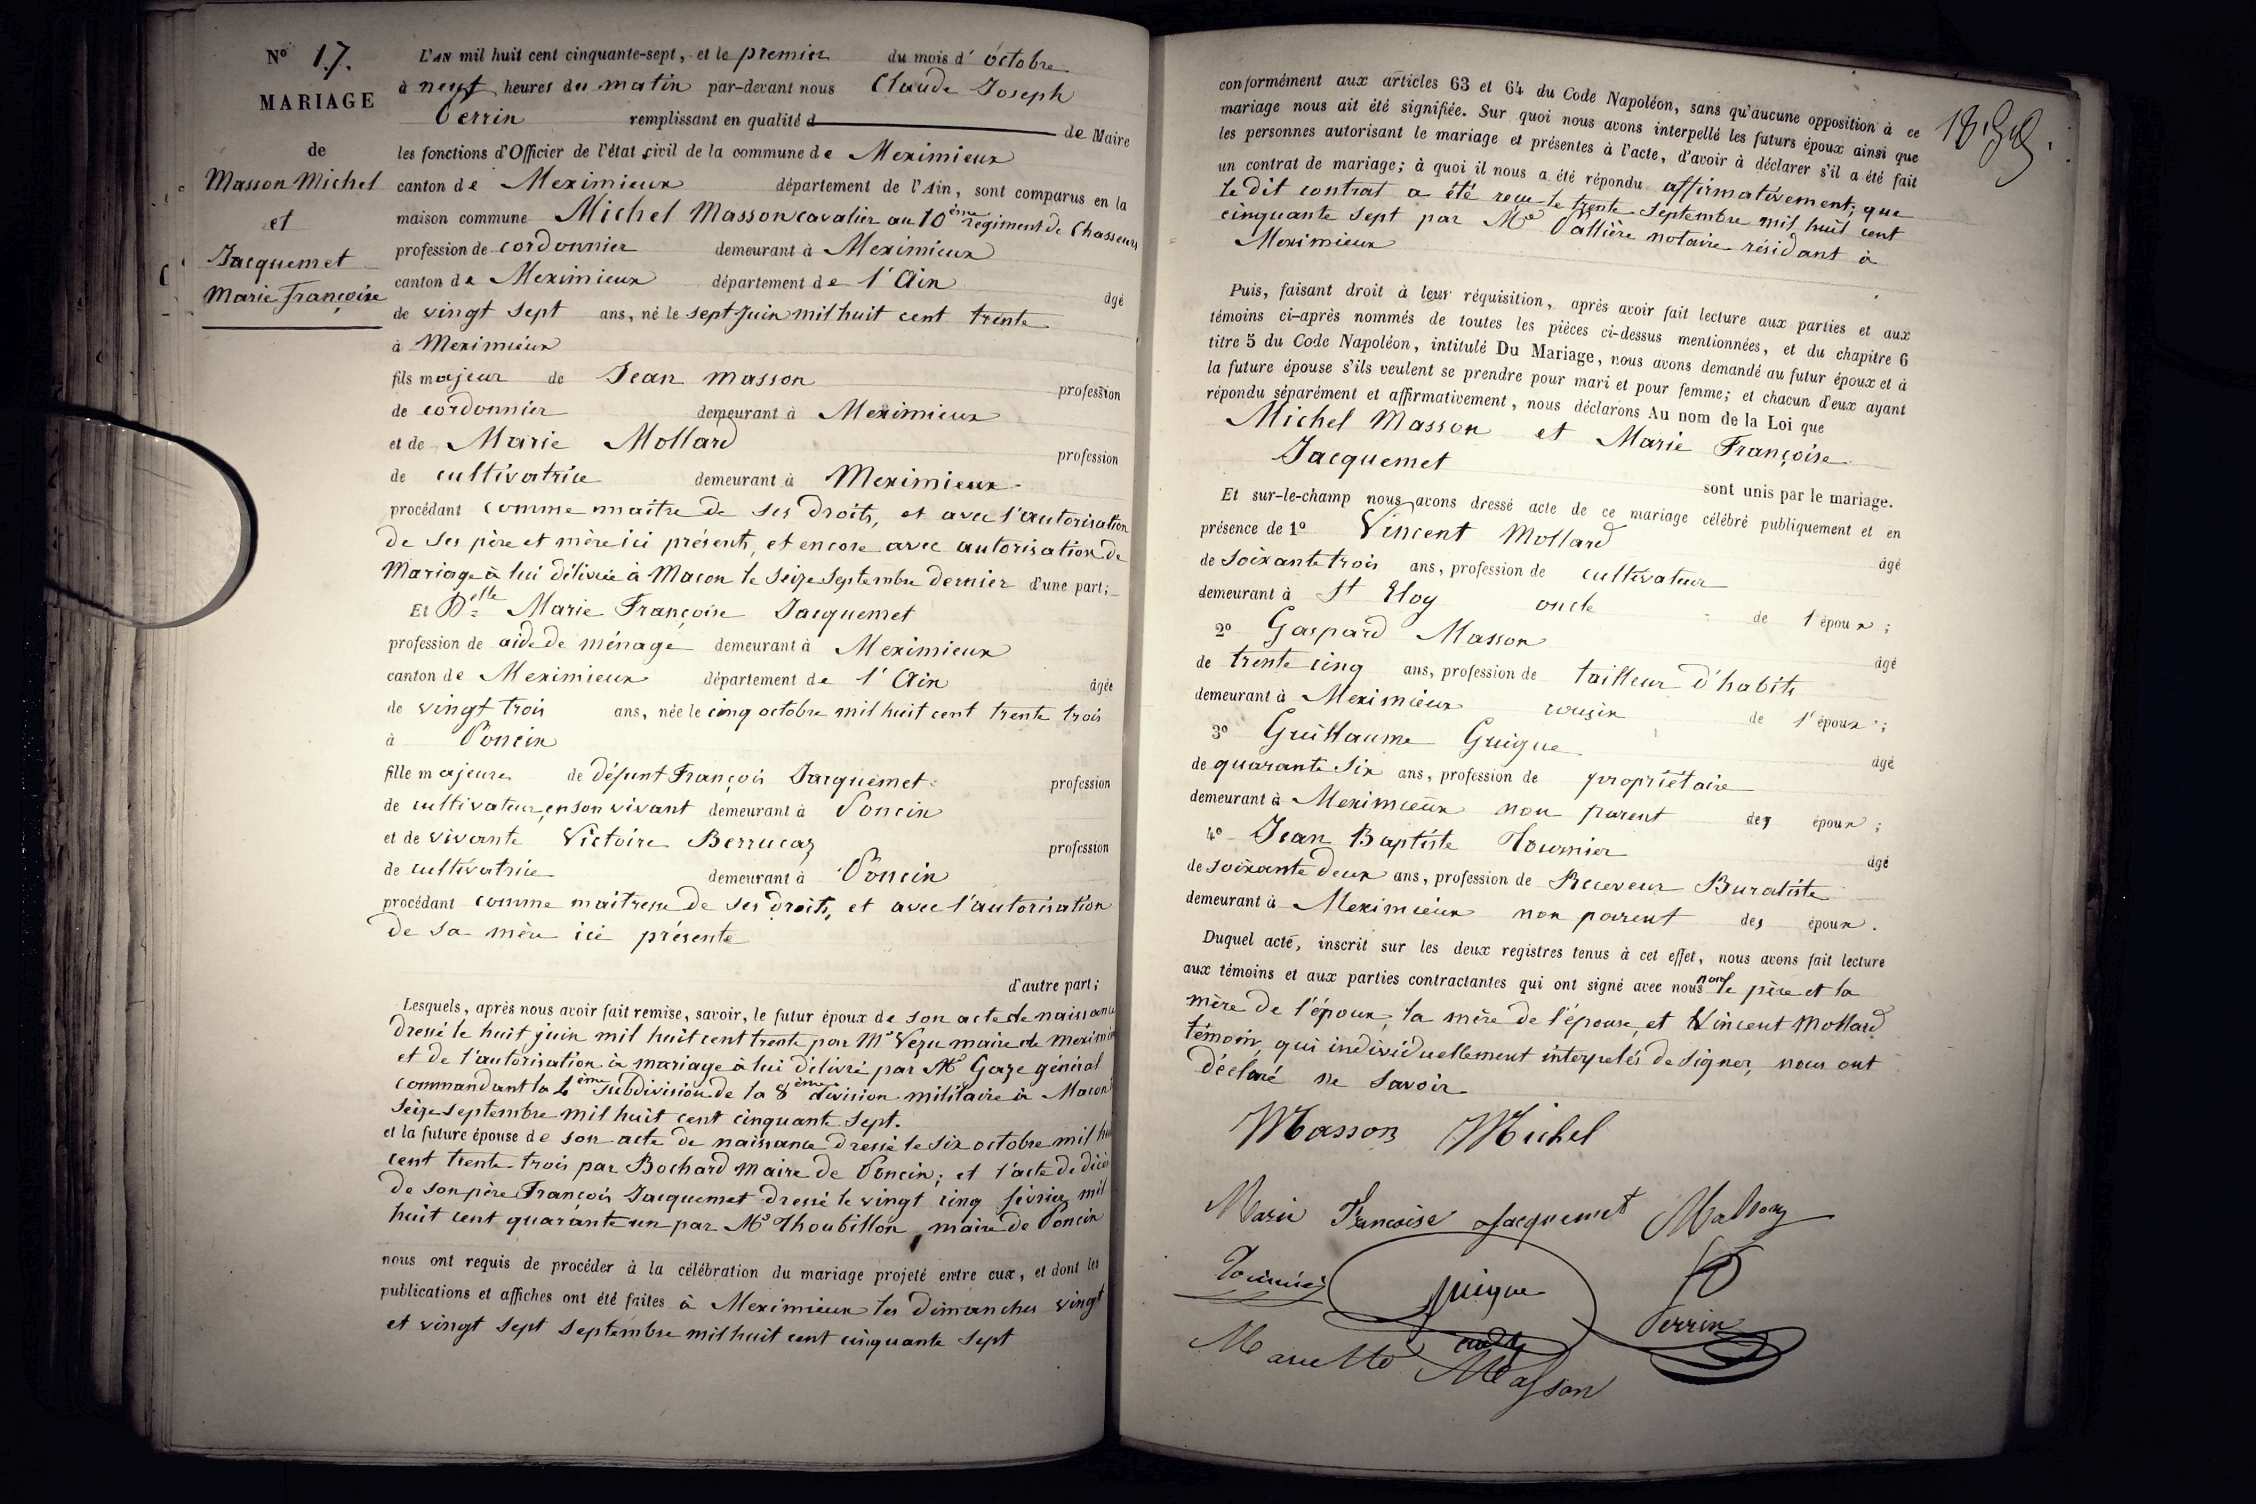 Nº 17.
MARIAGE
de
Masson Michel
et
Jacquemet
Marie Françoise
L'AN mil huit cent cinquante-sept, et le premier du mois d' octobre
à neuf heures du matin par-devant nous Claude Joseph
Perrin remplissant en qualité d de Maire
les fonctions d'Officier de l'état civil de la commune de Meximieux
canton de Meximieux département de l'Ain, sont comparus en la
maison commune Michel Masson cavalier au 10ème régiment de Chasseurs
profession de cordonnier demeurant à Meximieux
canton de Meximieux département de l'Ain âgé
de vingt sept ans, né le sept Juin mil huit cent trente
à Meximieux
fils majeur de Jean Masson profession
de cordonnier demeurant à Meximieux
et de Marie Mollard profession
de cultivatrice demeurant à Meximieux
procédant comme maître de ses droits, et avec l'autorisation
de ses père et mère ici présents, et encore avec autorisation de
Mariage à lui délivrée à Macon le seize septembre dernier d'une part;
Et Delle Marie Françoise Jacquemet
profession de aide de ménage demeurant à Meximieux
canton de Meximieux département de l'Ain âgée
de vingt trois ans, née le cinq octobre mil huit cent trente trois
à Poncin
fille majeure de défunt François Jacquemet profession
de cultivateur, en son vivant demeurant à Poncin
et de vivante Victoire Berrucaz profession
de cultivatrice demeurant à Poncin
procédant comme maitresse de ses droits, et avec l'autorisation
de sa mère ici présente
d'autre part;
Lesquels, après nous avoir fait remise, savoir, le futur époux de son acte de naissance
dressé le huit juin mil huit cent trente par Mr Vezu maire de Meximieux
et de l'autorisation à mariage à lui délivré par Mr Gaze général
commandant la 4ème subdivision de la 8ème division militaire à Macon
seize septembre mil huit cent cinquante sept.
et la future épouse de son acte de naissance dressé le six octobre mil hui
cent trente-trois par Bochard maire de Poncin; et l'acte de décès
de son père François Jacquemet dressé le vingt cinq février mil
huit cent quarante un par Mr Thoubillon, maire de Poncin
nous ont requis de procéder à la célébration du mariage projeté entre eux, et dont les
publications et affiches ont été faites à Meximieux les dimanches vingt
et vingt sept septembre mil huit cent cinquante sept
conformément aux articles 63 et 64 du Code Napoléon, sans qu'aucune opposition à ce
mariage nous ait été signifiée. Sur quoi nous avons interpellé les futurs époux ainsi que
les personnes autorisant le mariage et présentes à l'acte, d'avoir à déclarer s'il a été fait
un contrat de mariage; à quoi il nous a été répondu affirmativement; que
le dit contrat a été reçu le trente septembre mil huit cent
cinquante sept par Me Pallière notaire résidant à
Meximieux
Puis, faisant droit à leur réquisition, après avoir fait lecture aux parties et aux
témoins ci-après nommés de toutes les pièces ci-dessus mentionnées, et du chapitre 6
titre 5 du Code Napoléon, intitulé Du Mariage, nous avons demandé au futur époux et à
la future épouse s'ils veulent se prendre pour mari et pour femme; et chacun d'eux ayant
répondu séparément et affirmativement, nous déclarons Au nom de la Loi que
Michel Masson et Marie Françoise
Jacquemet
sont unis par le mariage.
Et sur-le-champ nous avons dressé acte de ce mariage célébré publiquement et en
présence de 1º Vincent Mollard âgé
de soixante trois ans, profession de cultivateur
demeurant à St Eloy oncle de l'époux;
2º Gaspard Masson âgé
de trente cinq ans, profession de tailleur d'habits
demeurant à Meximieux cousin de l'époux;
3º Guillaume Guigue âgé
de quarante six ans, profession de propriétaire
demeurant à Meximieux non parent des époux;
4º Jean Baptiste Tournier âgé
de soixante deux ans, profession de Receveur Buraliste
demeurant à Meximieux non parent des époux.
Duquel acte, inscrit sur les deux registres tenus à cet effet, nous avons fait lecture
aux témoins et aux parties contractantes qui ont signé avec nous non le père et la
mère de l'époux, la mère de l'épouse, et Vincent Mollard
témoin, qui individuellement interpelés de signer, nous ont
déclaré ne savoir
Masson Michel
Marie Francoise Jacquemet Masson
Tournier Guigue
Perrin
Masson